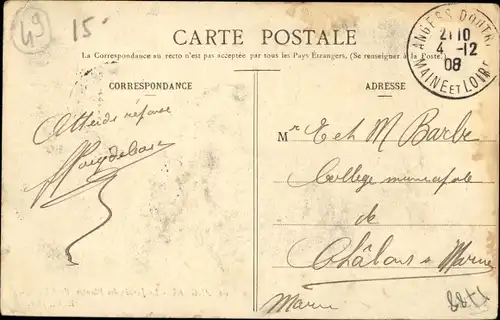 49
15
CARTE POSTALE
La Correspondance au recto n'est pas acceptée par tous les Pays Etrangers. (Se renseigner à la Poste.)
ANGERS DOUTRE
21 10
4 -12
08
MAINE ET LOIRE
CORRESPONDANCE
ADRESSE
Attends réponse
Mr E et M Barbe
Collège municipale
de
Châlons s Marne
Marne